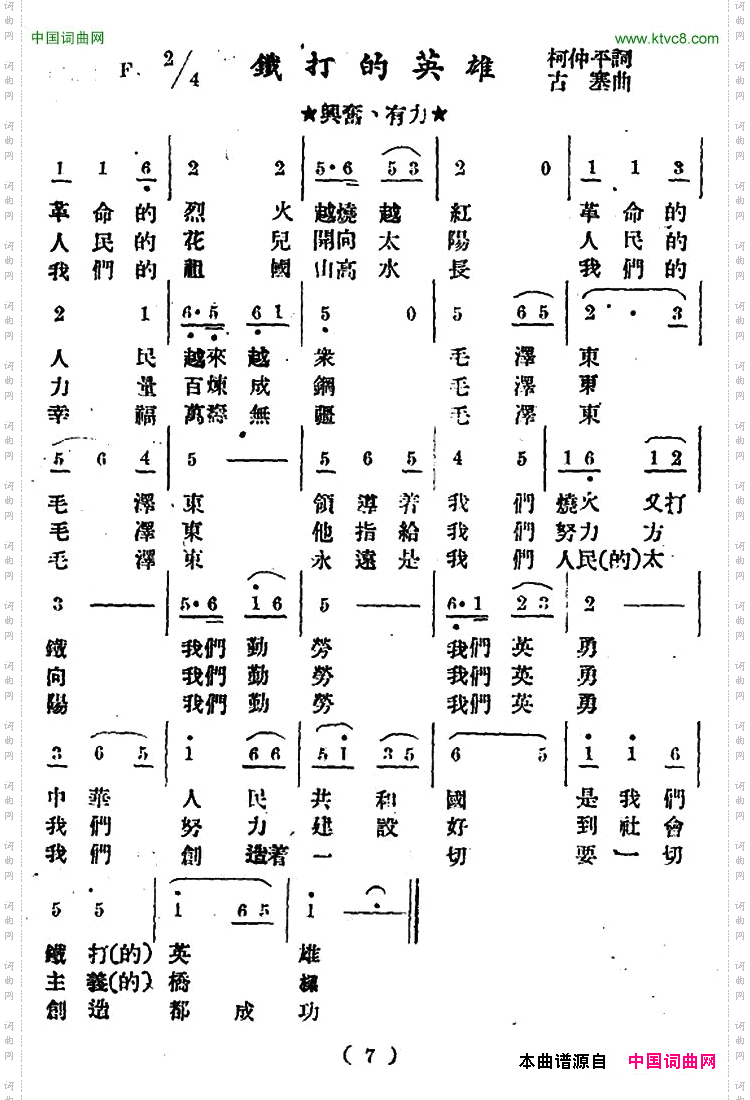 中国词曲网
www.ktvc8.com
F. 2/4 鐵打的英雄
柯仲平詞
古塞曲
★興奮、有力★
1 1 6 | 2 2 | 5·6 5 3 | 2 0 | 1 1 3 |
革命的烈火越燒越紅 革命的
人民的花兒開向太陽 人民的
我們的祖國山高水長 我們的
2 1 | 6·5 6 1 | 5 0 | 5 6 5 | 2· 3 |
人民越來越衆 毛澤東
力量百煉成鋼 毛澤東
幸福萬壽無疆 毛澤東
5 6 4 | 5 — | 5 6 5 | 4 5 | 1 6 1 2 |
毛澤東 領導着我們燒火又打
毛澤東 他指給我們努力方
毛澤東 永遠是我們人民(的)太
3 — | 5·6 1 6 | 5 — | 6·1 2 3 | 2 — |
鐵 我們勤勞 我們英勇
向 我們勤勞 我們英勇
陽 我們勤勞 我們英勇
3 6 5 | 1 6 6 | 5 1 3 5 | 6 5 | 1 1 6 |
中華人民共和國 是我們
我們努力建設好 到社會
我們創造着一切 要一切
5 5 | 1 6 5 | 1 — ‖
鐵打(的)英雄
主義(的)橋樑
創造都成功
(7)
本曲谱源自 中国词曲网
词曲网